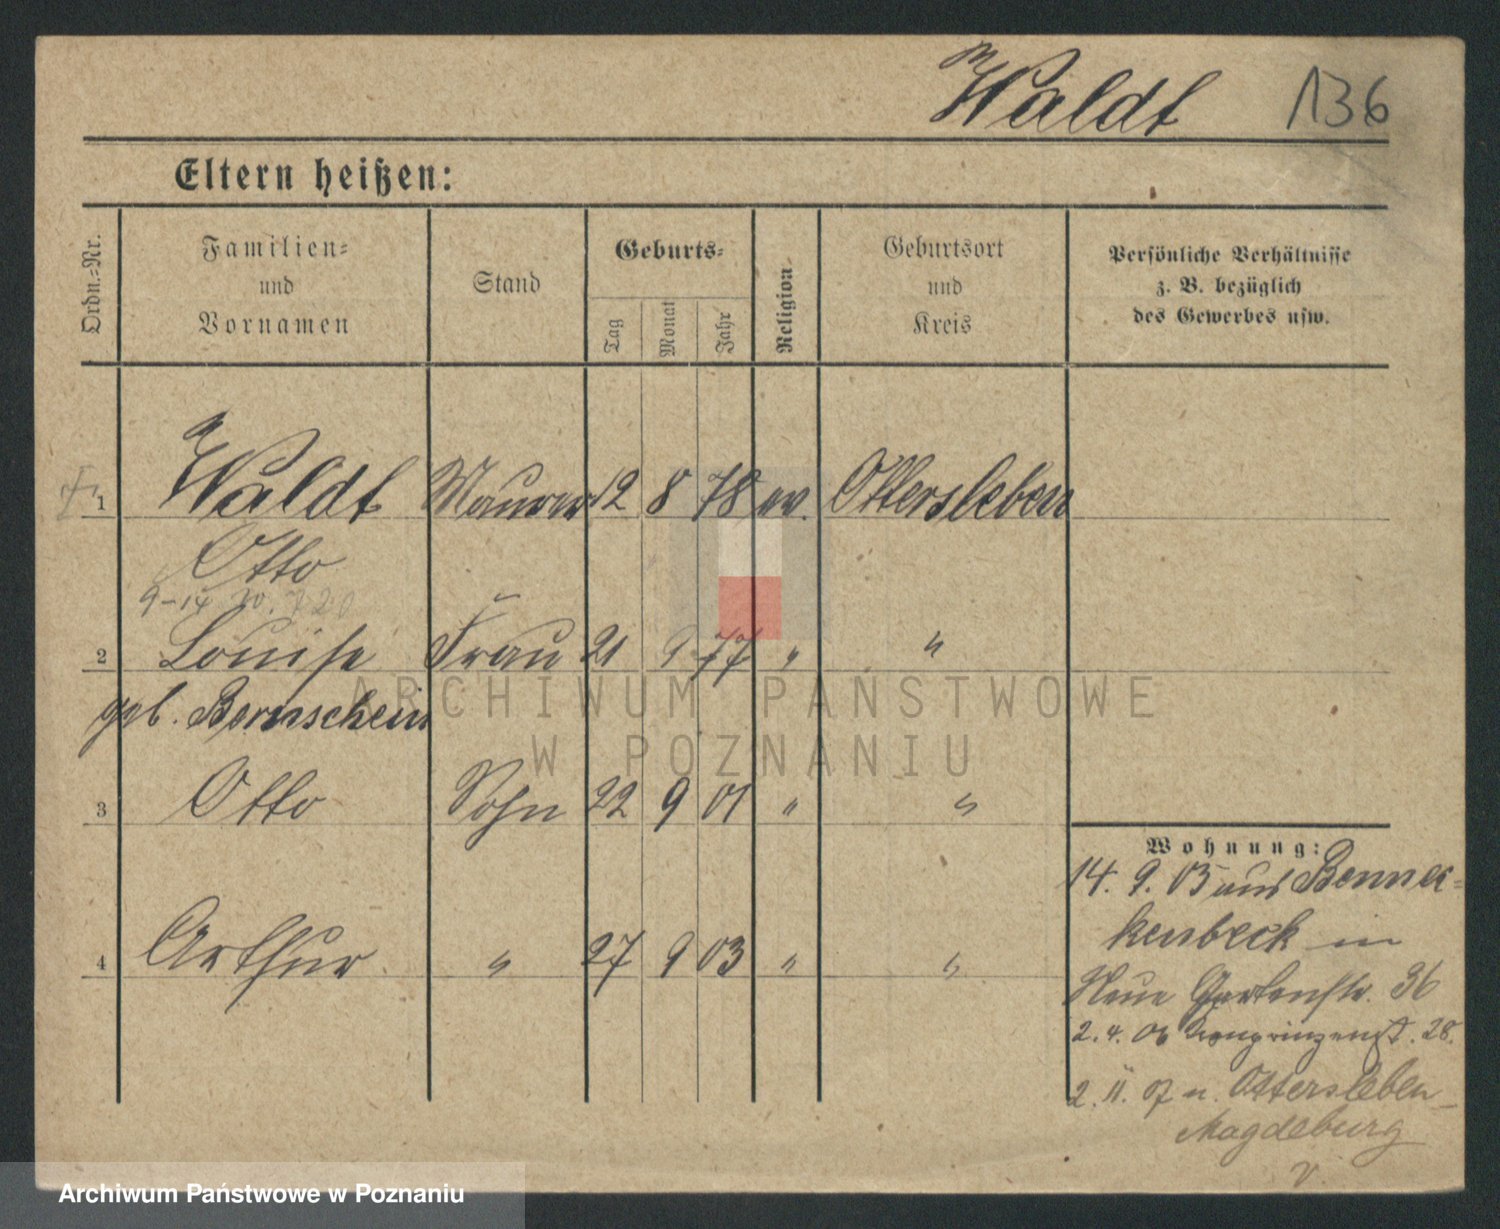 Waldt 136
Eltern heißen:
Ordn.-Nr.
Familien-
und
Vornamen
Stand
Geburts-
Tag
Monat
Jahr
Religion
Geburtsort
und
Kreis
Persönliche Verhältnisse
z. B. bezüglich
des Gewerbes usw.
1 Waldt Maurer 12 8 78 ev. Ottersleben
Otto
9-14
2 Louise Frau 21 9 77 " "
geb. Bernschein
3 Otto Sohn 22 9 01 " "
4 Arthur " 27 9 03 " "
Wohnung:
14. 9. 05 aus Bennec-
kenbeck in
Neue Gartenstr. 36
2. 4. 06 Kronprinzenst. 28.
2. 11. 07 n. Ottersleben-
Magdeburg
v.
ARCHIWUM PAŃSTWOWE
W POZNANIU
Archiwum Państwowe w Poznaniu